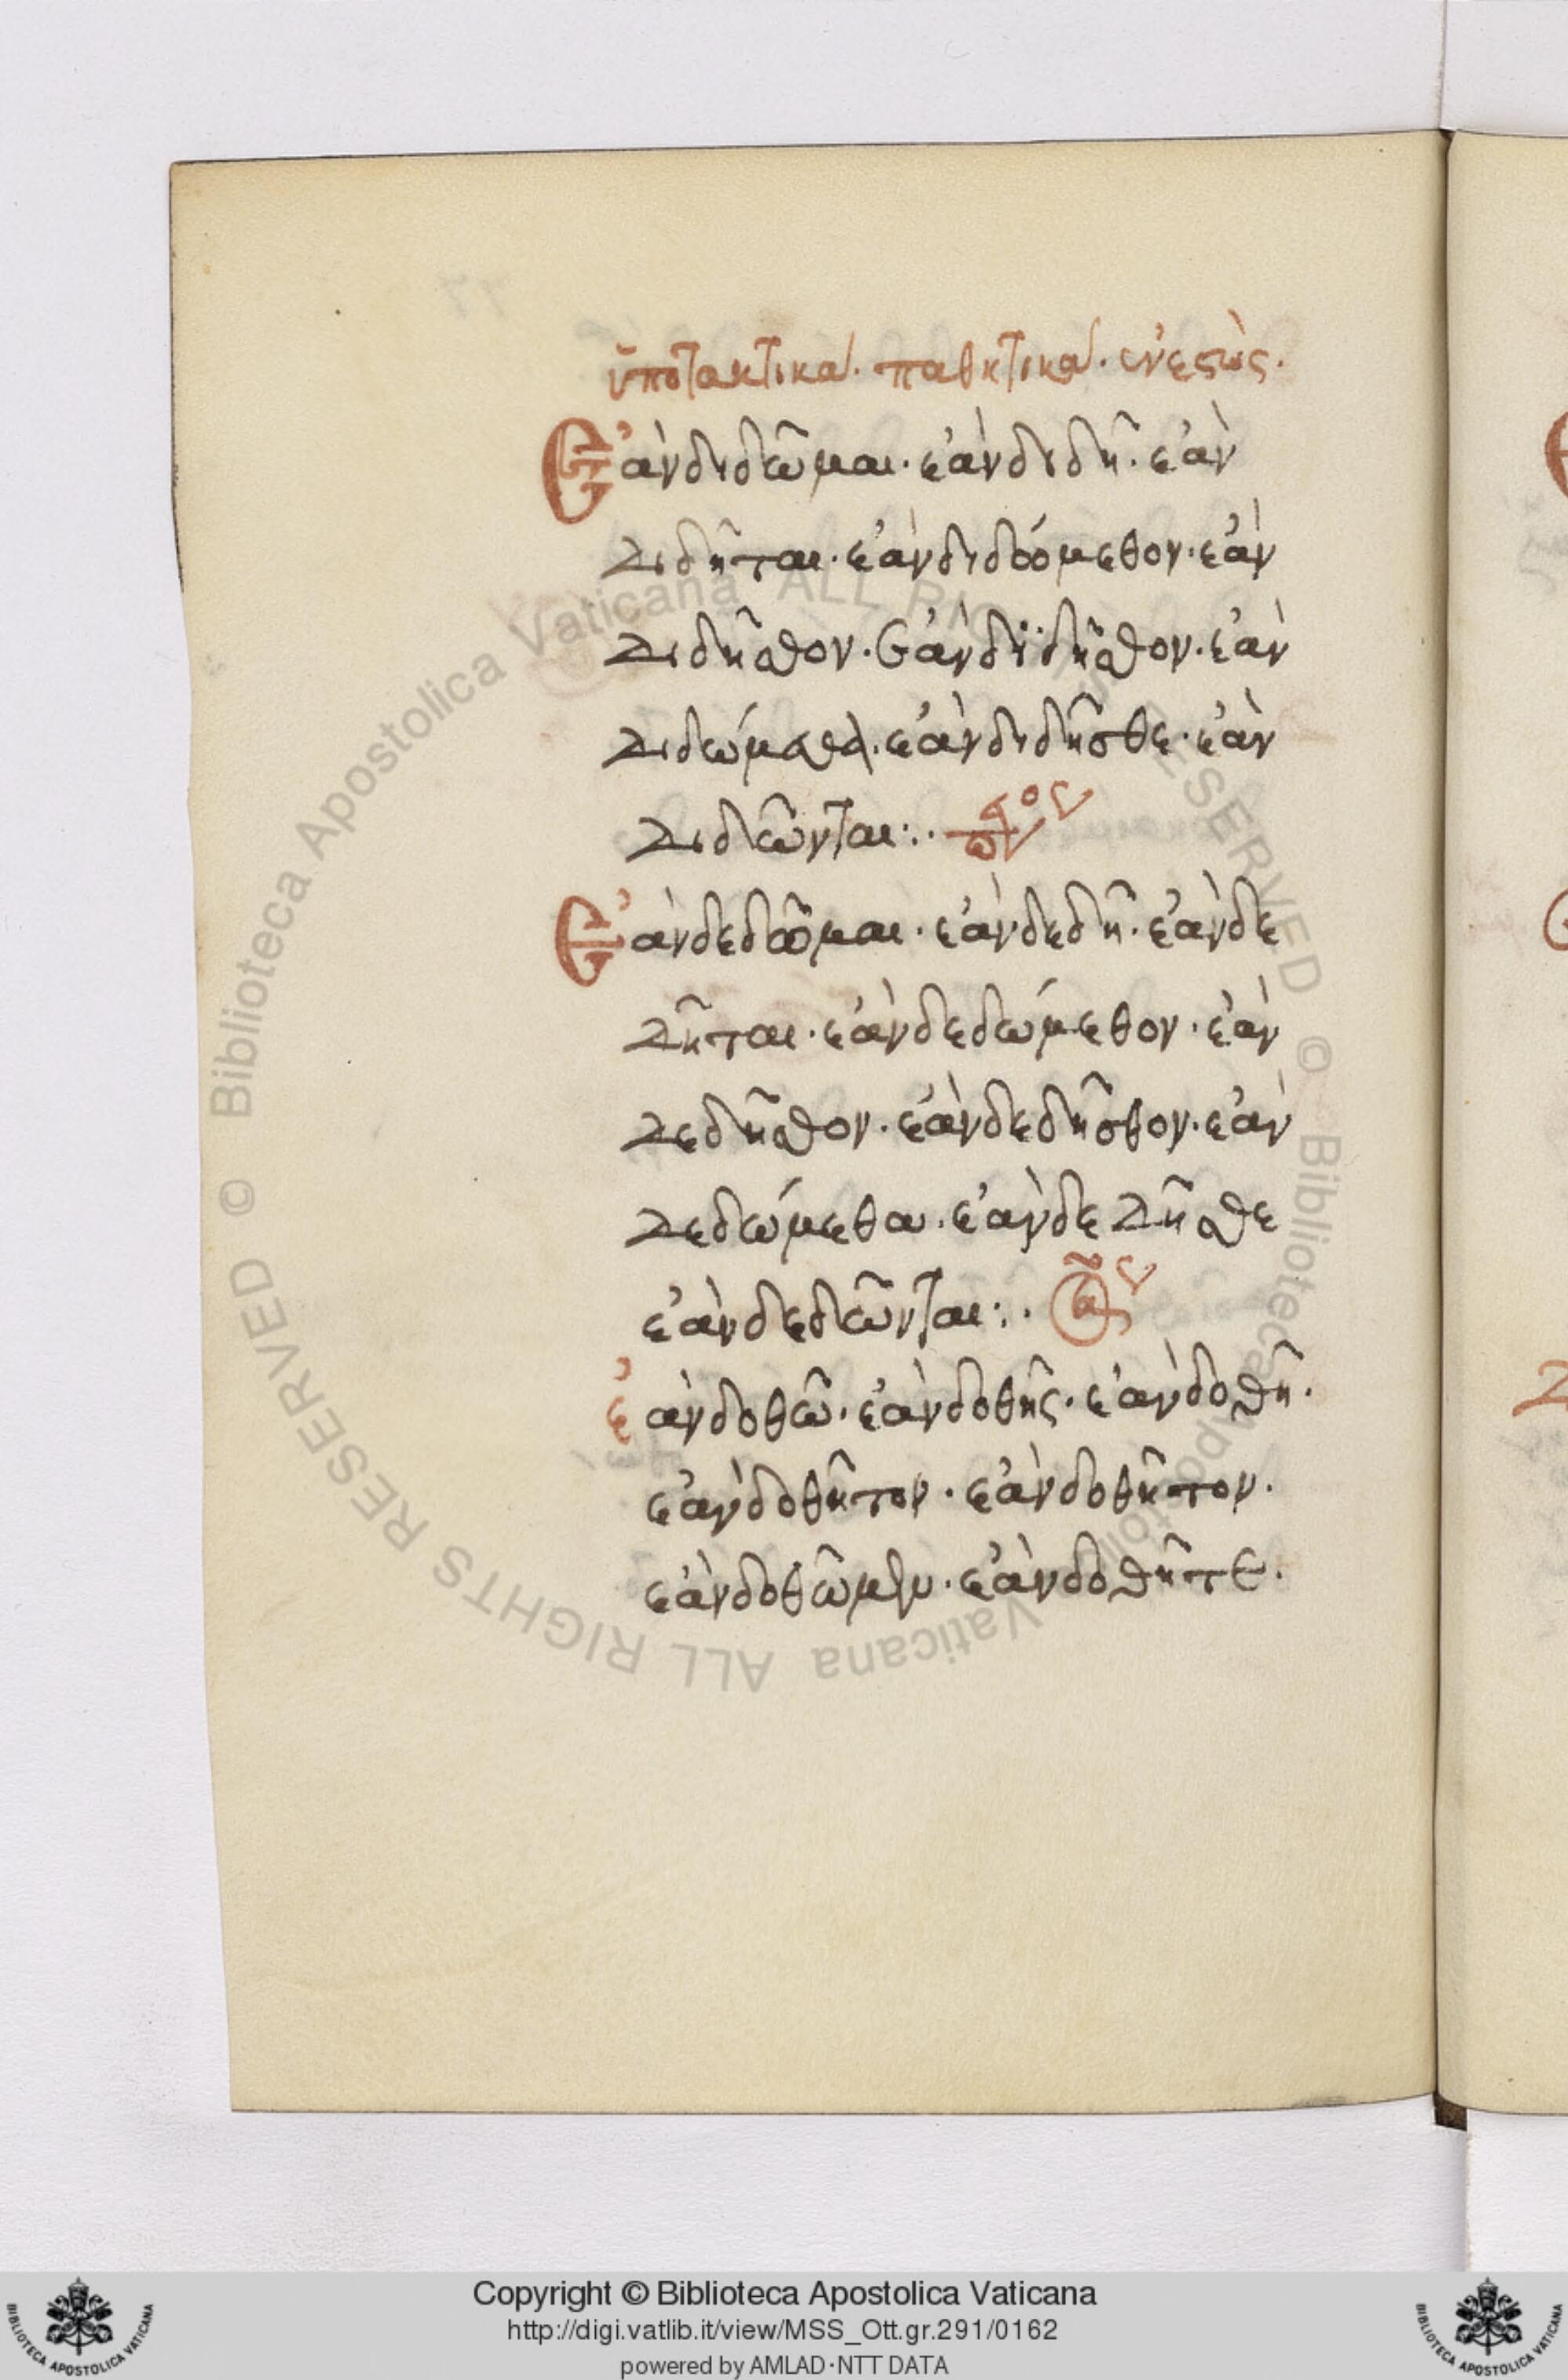 ὑποτακτικὰ. παθητικὰ. ἐνεστὼς.
Ἐὰν διδῶμαι. ἐὰν διδῆ. ἐὰν
διδῆται. ἐὰν διδόμεθον. ἐὰν
διδῆσθον. ἐὰν διδῆσθον. ἐὰν
διδώμεθα. ἐὰν διδῆσθε. ἐὰν
διδῶνται:.
Ἐὰν δεδῶμαι. ἐὰν δεδῆ. ἐὰν δε
δῆται. ἐὰν δεδώμεθον. ἐὰν
δεδῆσθον. ἐὰν δεδῆσθον. ἐὰν
δεδώμεθα. ἐὰν δεδῆσθε
ἐὰν δεδῶνται:.
ἐὰν δοθῶ. ἐὰν δοθῆς. ἐὰν δοθῆ.
ἐὰν δοθῆτον. ἐὰν δοθῆτον.
ἐὰν δοθῶμεν. ἐὰν δοθῆτε.
© Biblioteca Apostolica Vaticana ALL RIGHTS RESERVED © Biblioteca Apostolica Vaticana ALL RIGHTS RESERVED
Copyright © Biblioteca Apostolica Vaticana
http://digi.vatlib.it/view/MSS_Ott.gr.291/0162
powered by AMLAD·NTT DATA
BIBLIOTECA APOSTOLICA VATICANA
BIBLIOTECA APOSTOLICA VATICANA